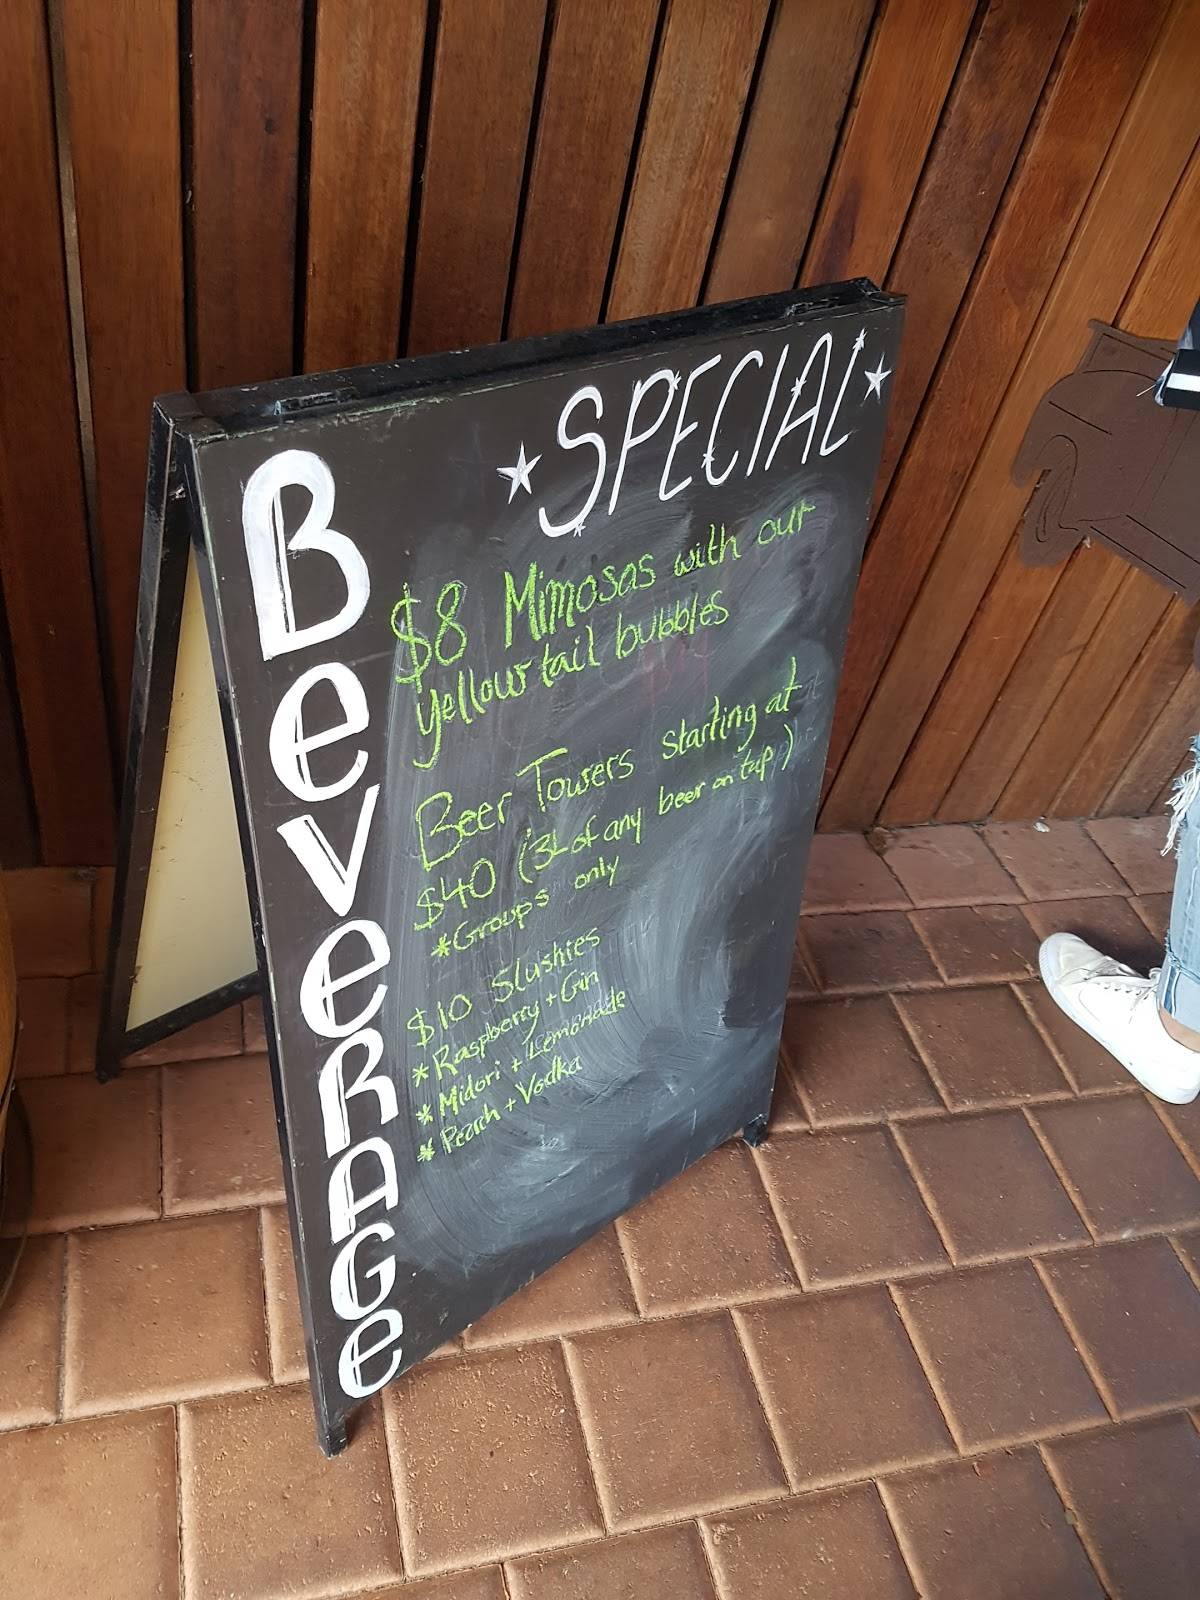 Beverage
SPECIAL
$8 Mimosas with our
yellow tail bubbles
Beer Towers starting at
$40 (3L of any beer on tap)
*Groups only
$10 Slushies
* Raspberry + Gin
* Midori + Lemonade
* Peach + Vodka